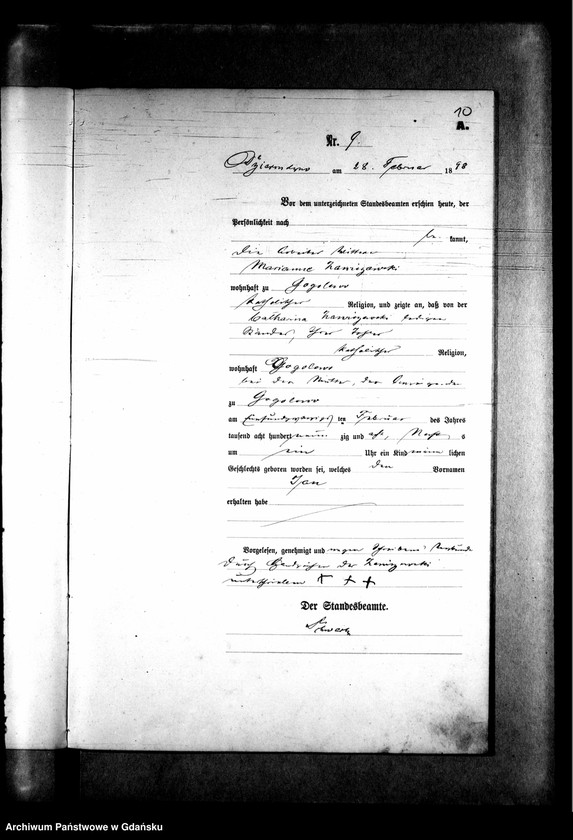 10
A.
Nr. 9.
am 28. Februar 1898
Vor dem unterzeichneten Standesbeamten erschien heute, der
Persönlichkeit nach
be kannt,
die Arbeiter Wittwe
Marianne Zawiszewski
wohnhaft zu Gogolewo
katholischer Religion, und zeigte an, daß von der
Catharina Zawiszewski ledigen
Standes, ihrer Tochter
katholischer Religion,
wohnhaft Gogolewo
bei der Mutter, der Anzeigende
zu Gogolewo
am ten Februar des Jahres
tausend acht hundert neun zig und acht, Nachts
um ein Uhr ein Kind männ lichen
Geschlechts geboren worden sei, welches den Vornamen
Jan
erhalten habe
Vorgelesen, genehmigt und wegen Schreibens
durch Handzeichen der Zawiszewski
unterschrieben + + +
Der Standesbeamte.
Archiwum Państwowe w Gdańsku